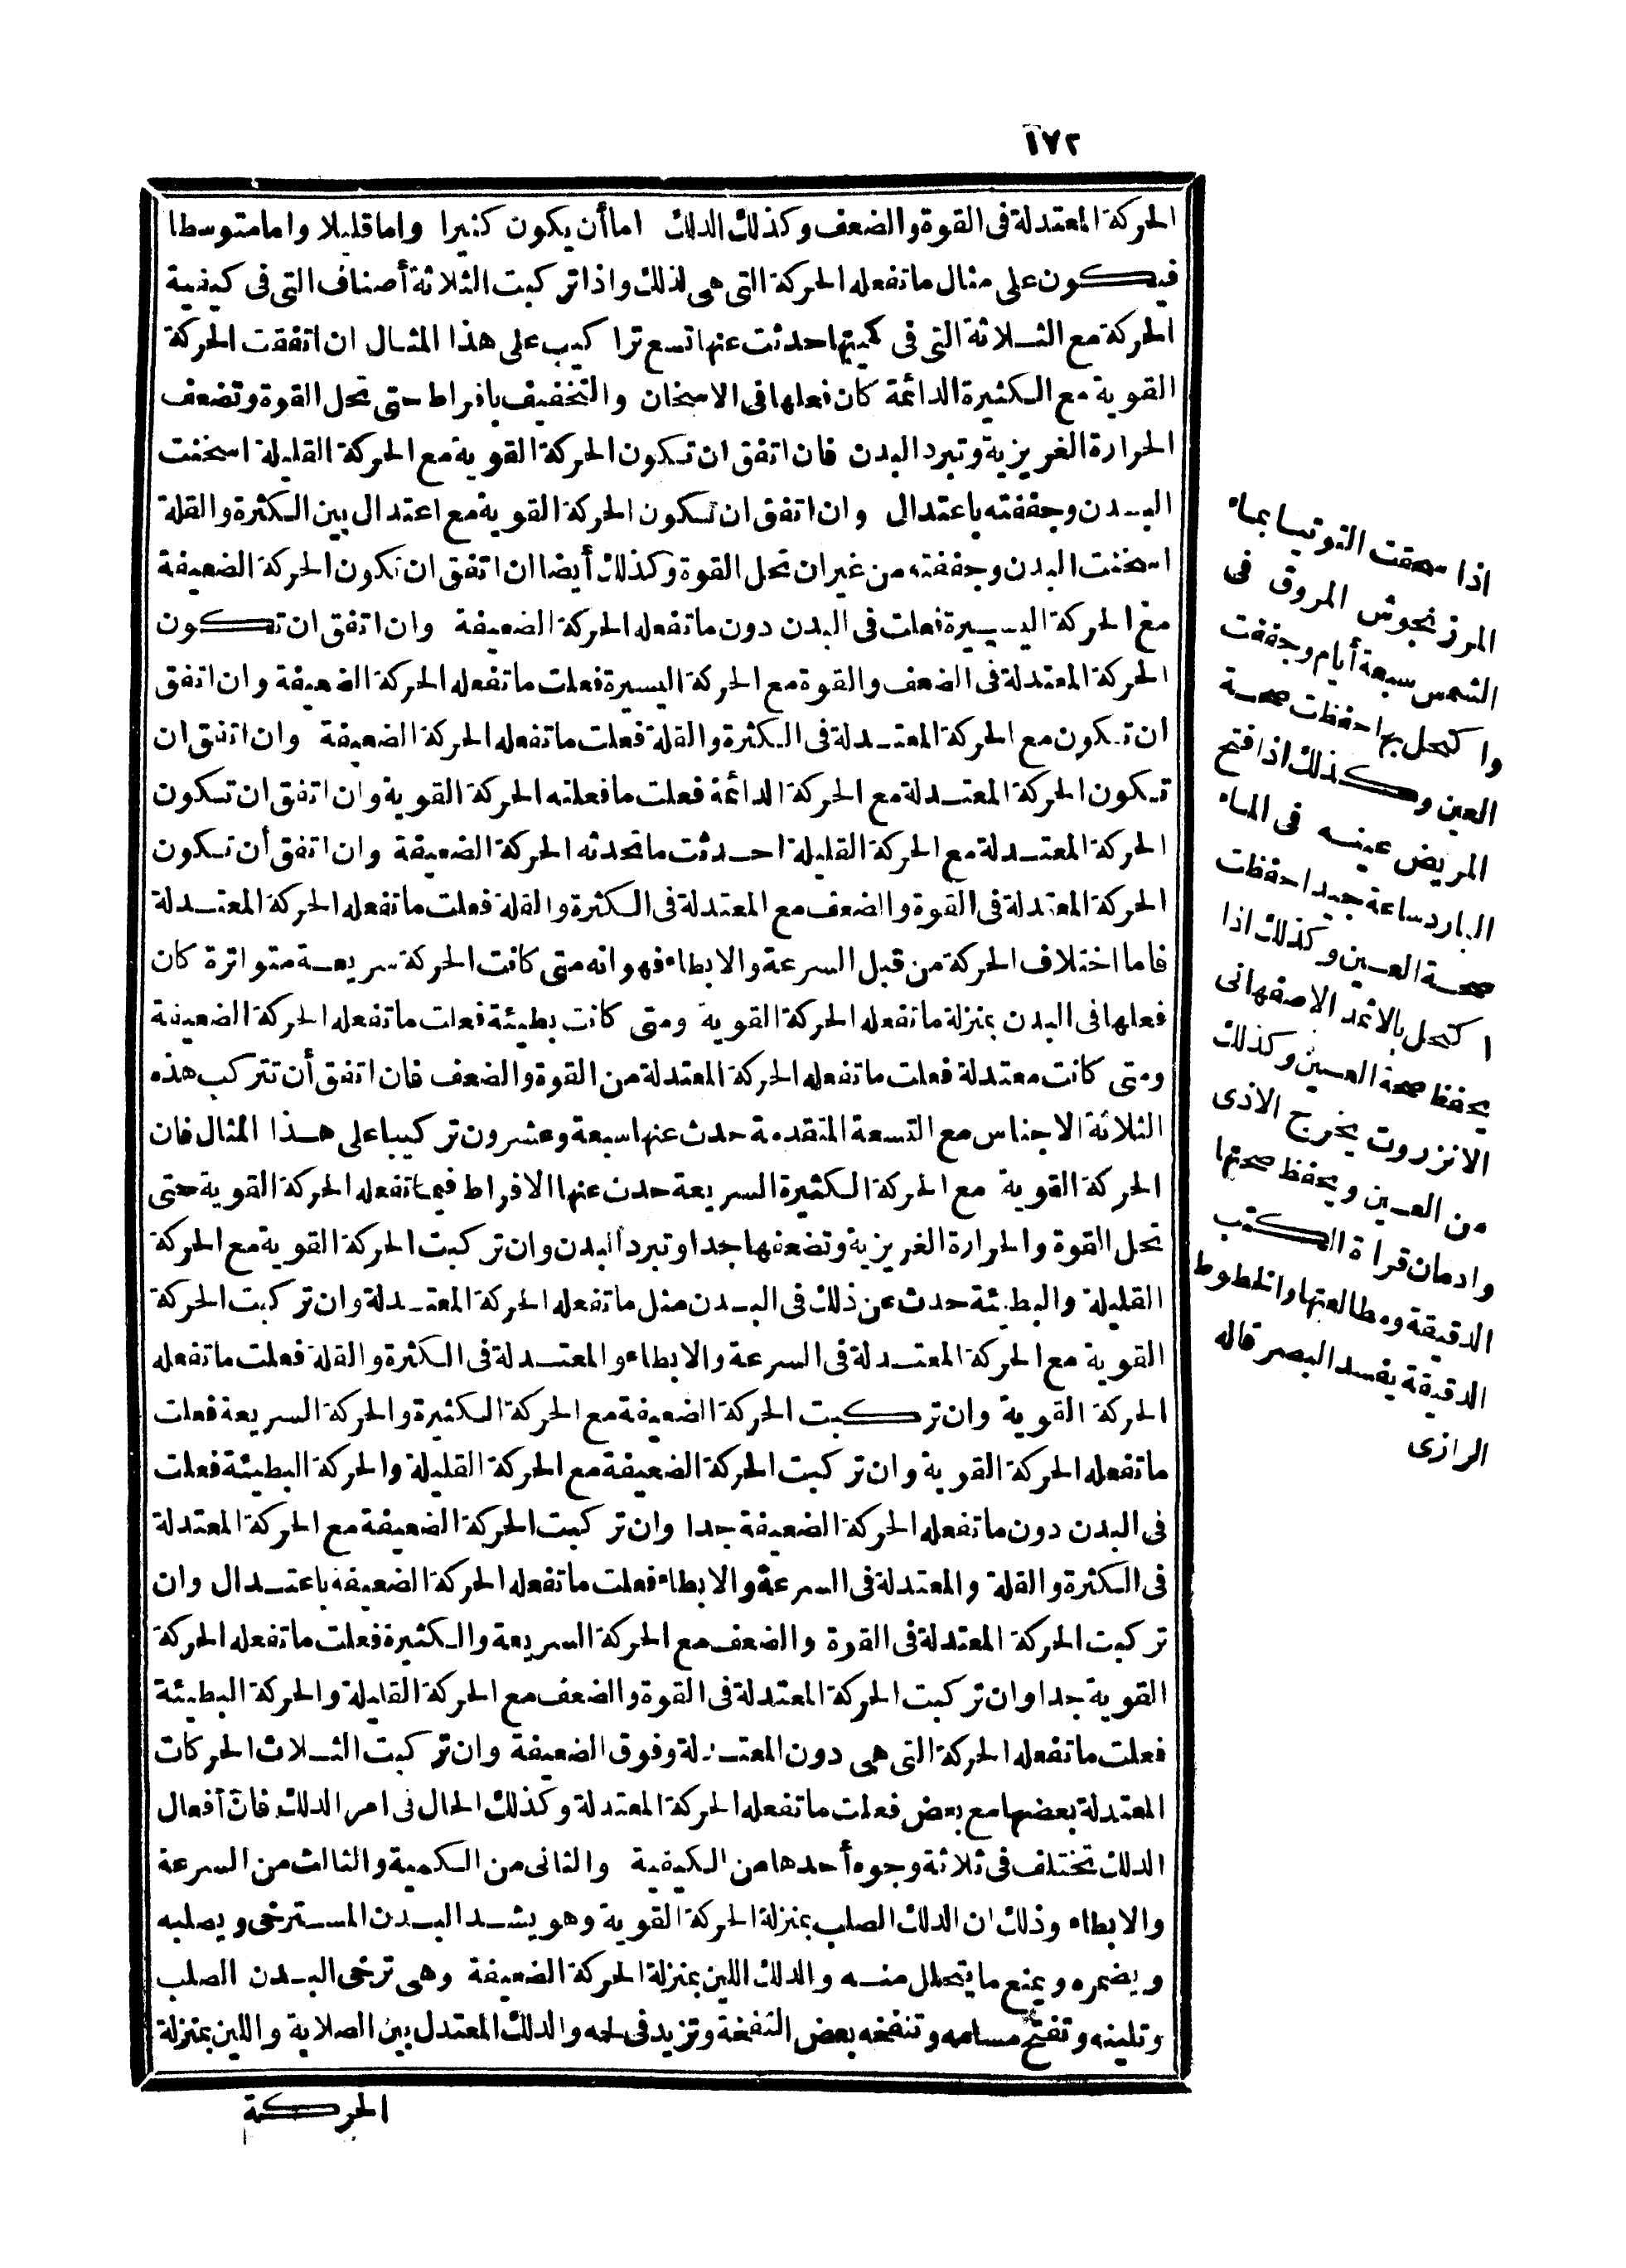 ١٧٢
الحركة المعتدلة فى القوة والضعف وكذلك الدلك اما أن يكون كثيرا واما قليلا واما متوسطا
فيكون على مثال ما تفعله الحركة التى هى لذلك واذا تركبت الثلاثة أصناف التى فى كيفية
الحركة مع الثلاثة التى فى كميتها حدثت عنها تسع تراكيب على هذا المثال ان اتفقت الحركة
القوية مع الكثيرة الدائمة كان فعلها فى الاسخان والتخفيف بافراط حتى تحل القوة وتضعف
الحرارة الغريزية وتبرد البدن فان اتفق ان تكون الحركة القوية مع الحركة القليلة اسخنت
البدن وجففته باعتدال وان اتفق ان تكون الحركة القوية مع اعتدال بين الكثرة والقلة
اسخنت البدن وجففته من غير ان تحل القوة وكذلك أيضا ان اتفق ان تكون الحركة الضعيفة
مع الحركة اليسيرة فعلت فى البدن دون ما تفعله الحركة الضعيفة وان اتفق ان تكون
الحركة المعتدلة فى الضعف والقوة مع الحركة اليسيرة فعلت ما تفعله الحركة الضعيفة وان اتفق
ان تكون مع الحركة المعتدلة فى الكثرة والقلة فعلت ما تفعله الحركة الضعيفة وان اتفق ان
تكون الحركة المعتدلة مع الحركة الدائمة فعلت ما فعلته الحركة القوية وان اتفق ان تكون
الحركة المعتدلة مع الحركة القليلة احدثت ما تحدثه الحركة الضعيفة وان اتفق أن تكون
الحركة المعتدلة فى القوة والضعف مع المعتدلة فى الكثرة والقلة فعلت ما تفعله الحركة المعتدلة
فاما اختلاف الحركة من قبل السرعة والابطاء فهو انه متى كانت الحركة سريعة متواترة كان
فعلها فى البدن بمنزلة ما تفعله الحركة القوية ومتى كانت بطيئة فعلت ما تفعله الحركة الضعيفة
ومتى كانت معتدلة فعلت ما تفعله الحركة المعتدلة من القوة والضعف فان اتفق أن تتركب هذه
الثلاثة الاجناس مع التسعة المتقدمة حدث عنها سبعة وعشرون تركيبا على هذا المثال فان
الحركة القوية مع الحركة الكثيرة السريعة حدث عنها الافراط فيما تفعله الحركة القوية حتى
تحل القوة والحرارة الغريزية وتضعفها جدا وتبرد البدن وان تركبت الحركة القوية مع الحركة
القليلة والبطيئة حدث عن ذلك فى البدن مثل ما تفعله الحركة المعتدلة وان تركبت الحركة
القوية مع الحركة المعتدلة فى السرعة والابطاء والمعتدلة فى الكثرة والقلة فعلت ما تفعله
الحركة القوية وان تركبت الحركة الضعيفة مع الحركة الكثيرة والحركة السريعة فعلت
ما تفعله الحركة القوية وان تركبت الحركة الضعيفة مع الحركة القليلة والحركة البطيئة فعلت
فى البدن دون ما تفعله الحركة الضعيفة جدا وان تركبت الحركة الضعيفة مع الحركة المعتدلة
فى الكثرة والقلة والمعتدلة فى السرعة والابطاء فعلت ما تفعله الحركة الضعيفة باعتدال وان
تركبت الحركة المعتدلة فى القوة والضعف مع الحركة السريعة والكثيرة فعلت ما تفعله الحركة
القوية جدا وان تركبت الحركة المعتدلة فى القوة والضعف مع الحركة القليلة والحركة البطيئة
فعلت ما تفعله الحركة التى هى دون المعتدلة وفوق الضعيفة وان تركبت الثلاث الحركات
المعتدلة بعضها مع بعض فعلت ما تفعله الحركة المعتدلة وكذلك الحال فى امر الدلك فان أفعال
الدلك تختلف فى ثلاثة وجوه أحدها من الكيفية والثانى من الكمية والثالث من السرعة
والابطاء وذلك ان الدلك الصلب بمنزلة الحركة القوية وهو يشد البدن المسترخى ويصلبه
ويضمره ويمنع ما يتحلل منه والدلك اللين بمنزلة الحركة الضعيفة وهى ترخى البدن الصلب
وتلينه وتفتح مسامه وتنفخه بعض النفخة وتزيد فى لحمه والدلك المعتدل بين الصلابة واللين بمنزلة
الحركة
اذا سحقت التوتيا بماء
المرزنجوش المروق فى
الشمس سبعة أيام وجففت
واكتحل بها حفظت صحة
العين وكذلك اذا فتح
المريض عينه فى الماء
البارد ساعة جيدا حفظت
صحة العين وكذلك اذا
اكتحل بالاثمد الاصفهانى
يحفظ صحة العين وكذلك
الانزروت يخرج الاذى
من العين ويحفظ صحتها
وادمان قراءة الكتب
الدقيقة ومطالعتها والخطوط
الدقيقة يفسد البصر قاله
الرازى